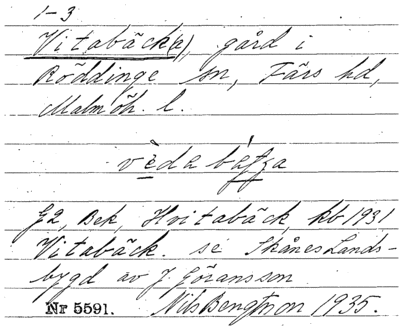 1-3
Vitabäck(a), gård i
Röddinge sn, Färs hd,
Malmöh. l.
vèda bátʒa
G2, Bek, Hvitabäck, kb 1931
Vitabäck. se Skånes Lands-
bygd av J. Göransson
Nr 5591. Nils Bengtsson 1935.